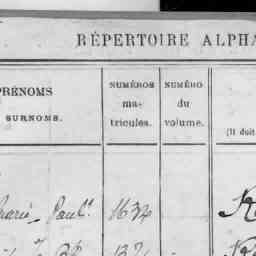 RÉPERTOIRE ALPHA
PRÉNOMS
SURNOMS.
NUMÉROS
ma-
tricules.
NUMÉRO
du
volume.
(Il doit
Marie-Paul. 1634